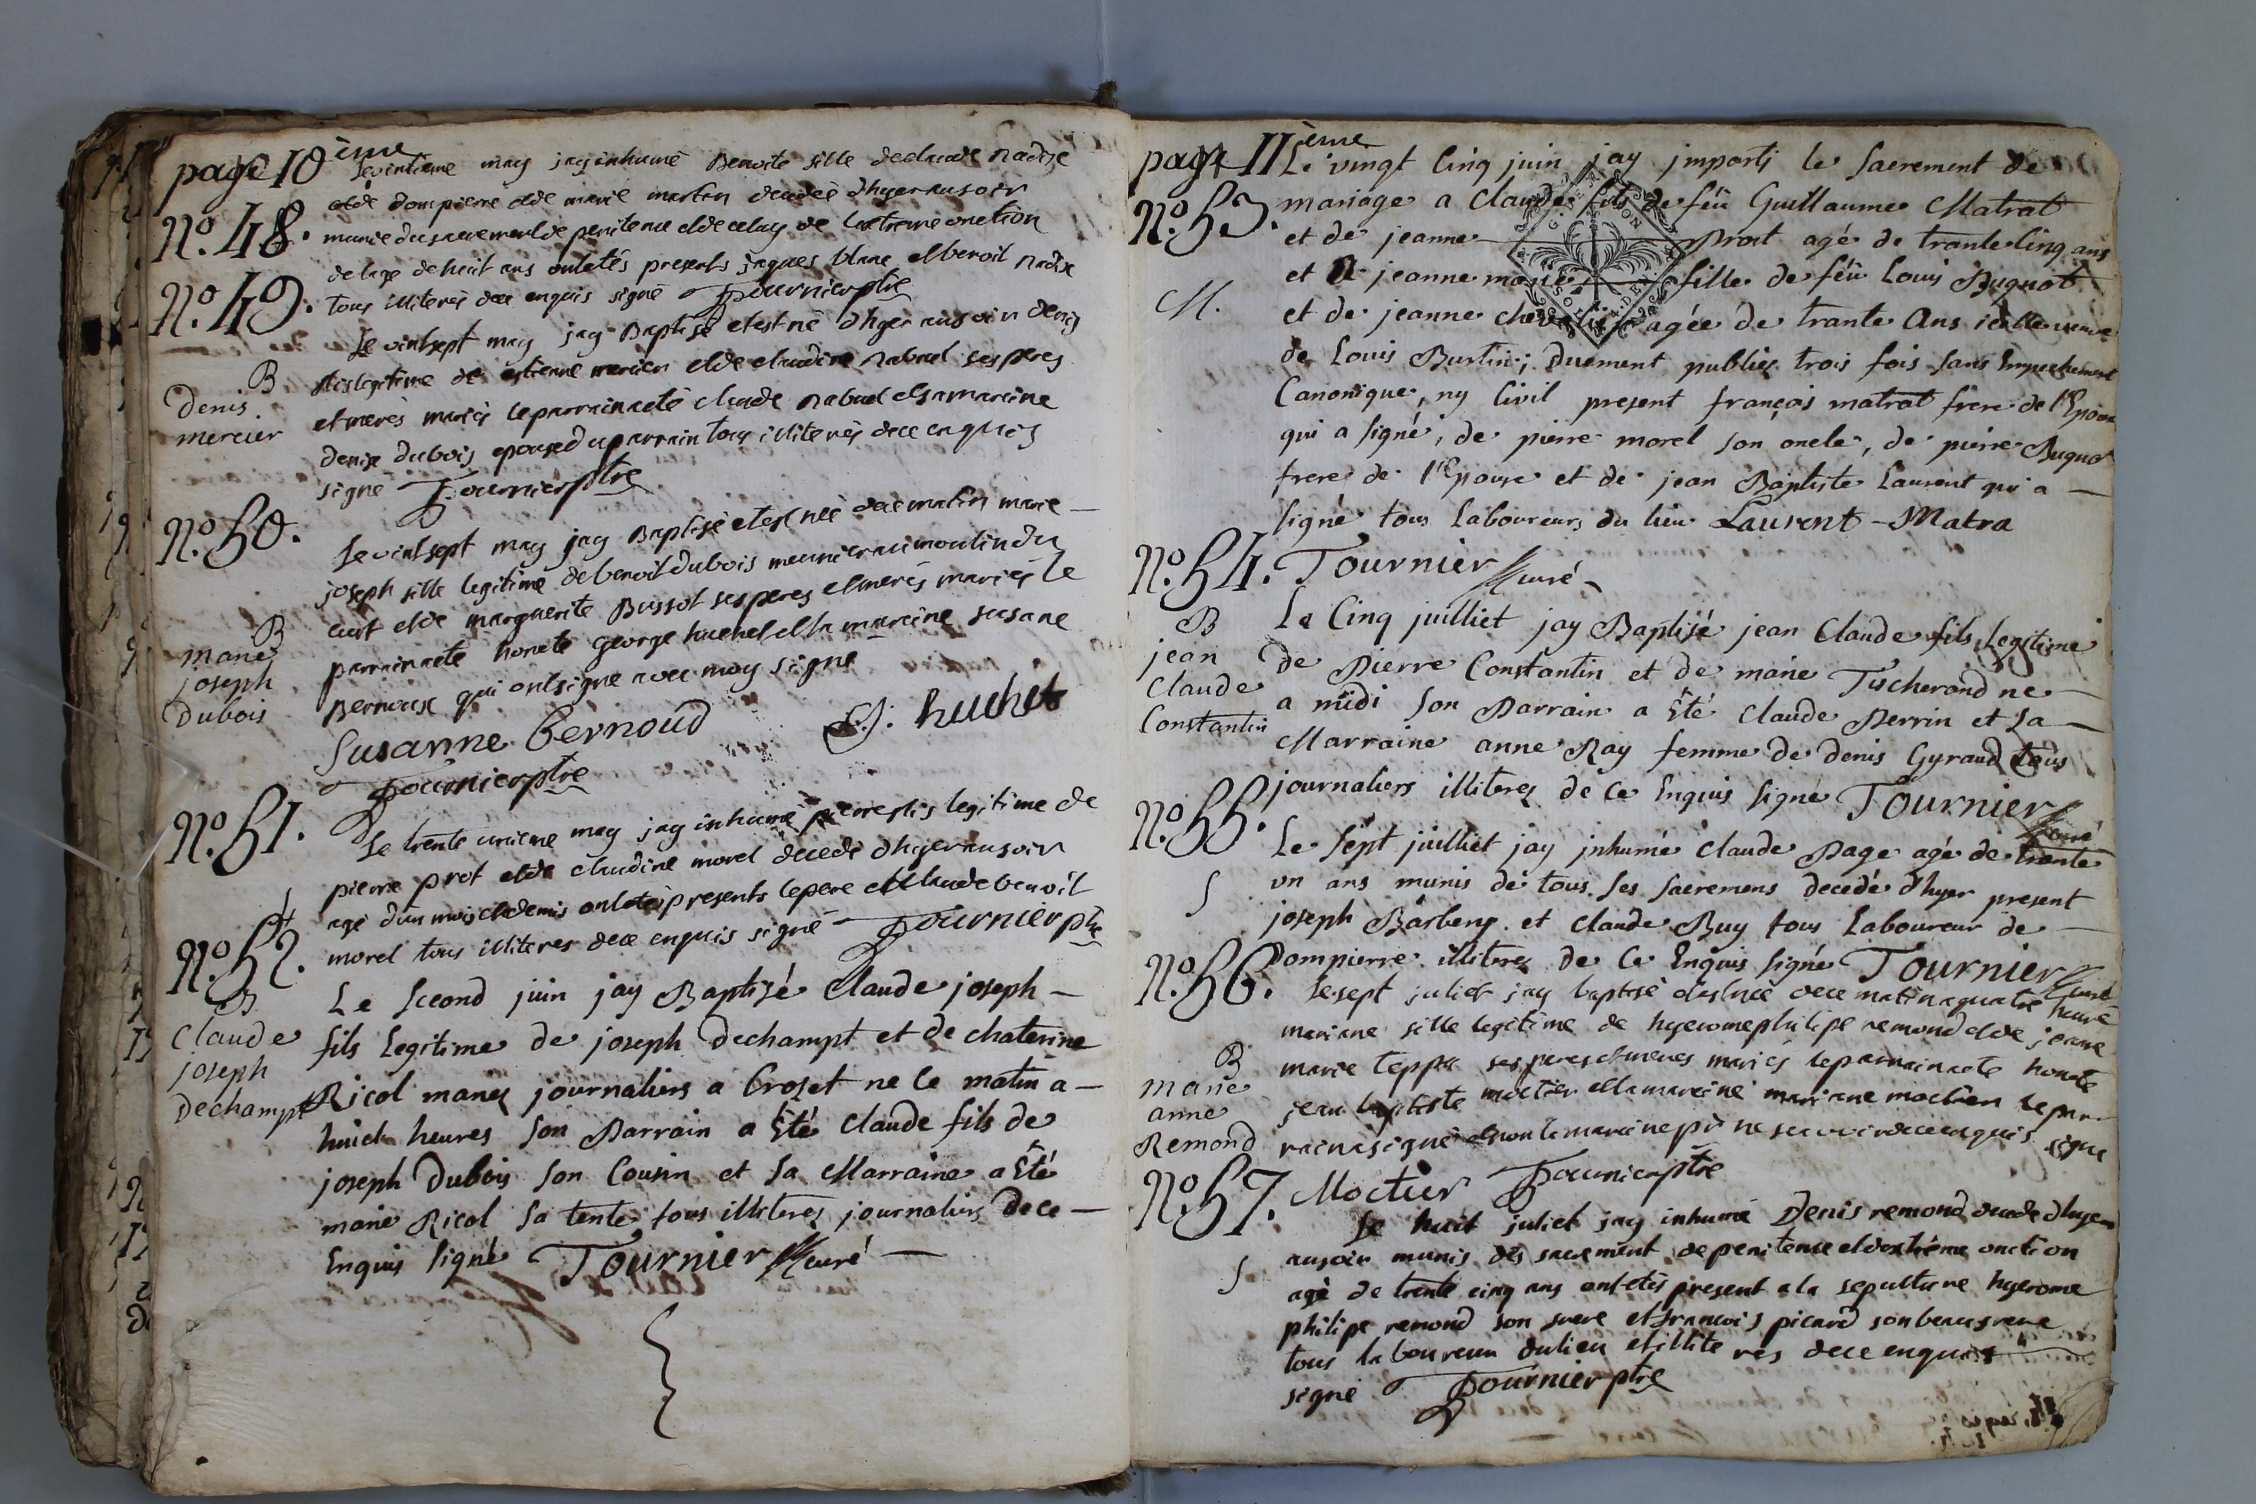 page 10 ème
No. 48.
Le vintieme may jay inhumé Benoite fille de claude
de dompierre et de marie martin decedée dhyer au soir
munie du sacrement de penitence et de celuy de lextreme onction
de lage de huit ans ont etés presents jaques blanc et benoit
tous illiterés de ce enquis signé Tournier ptre
No. 49.
B
denis
mercier
Le vintsept may jay Baptisé et est né dhyer au soir denis
fils legitime de estienne mercier et de claudine nabud ses peres
et meres mariés le parrain a eté claude nabud et sa maraine
denise dubois epouse du parrain tous illiterés de ce enquis
signé Tournier ptre
No. 50.
B
marie
joseph
Dubois
Le vintsept may jay Baptisé et est née de ce matin marie —
joseph fille legitime de benoit dubois meunier au moulin du
curt et de marguerite Bussot ses peres et meres mariés le
parrain a eté honete george huchet et la maraine susane
Bernoux qui ont signé avec moy signé
Susanne bernoud G. huchet
Tournier ptre
No. 51.
Le trente unieme may jay inhumé pierre fils legitime de
pierre prot et de claudine morel decedé dhyer au soir
agé dun mois et demis ont etés presents le pere et claude benoit
morel tous illiteres de ce enquis signé Tournier ptre
No. 52.
B
Claude
joseph
dechampt
Le second juin jay Baptisé Claude joseph —
fils Legitime de joseph dechampt et de chaterine
Ricol mariez journaliers a Crozet ne le matin a —
huict heures son Parrain a Eté Claude fils de
joseph Dubois son Cousin et sa Marraine a Eté
marie Ricol sa tente tous illiterez journaliers de ce —
Enquis signé Tournier curé —
page 11 ème
No. 53.
M.
Le vingt Cinq juin jay imparti le sacrement de
mariage a Claude fils de feü Guillaume Matrat
et de jeanne Prost agé de trante Cinq ans
et a jeanne marie fille de feü Louis Buguot
et de jeanne agée de trante Ans icelle veuve
de Louis Burtin; Duement publiez trois fois sans Empechement
Canonique, ny Civil present françois matrat frere de l'Epoux
qui a signé, de pierre morel son oncle, de pierre Buguot
frere de l'Epouse et de jean Baptiste Laurent qui a —
signé tous Laboureurs du lieu Laurent - Matra
No. 54. Tournier curé
B
jean
Claude
Constantin
Le Cinq juilliet jay Baptisé jean Claude fils Legitime
de Pierre Constantin et de marie Tischerand ne —
a midi son Parrain a Eté Claude Perrin et sa —
Marraine anne Ray femme de denis Gyraud tous
journaliers illiterez de ce Enquis signé Tournier curé
No. 55.
S
Le sept juilliet jay inhumé Claude Page agé de trante
un ans munis de tous ses sacremens decedé dhyer present
joseph Barberz et Claude Buy tous Laboureur de —
Dompierre illiterez de Ce Enquis signé Tournier curé
No. 56.
B
marie
anne
Remond
Le sept juliet jay baptisé et est née de ce matin a quatre heure
mariane fille legitime de hyerome philipe remond et de jeanne
marie teppa ses peres et meres mariés le parrain a eté honete
jean baptiste moctier et la maraine mariane moctier le par
rain a signé et non la maraine pr ne scavoir de ce enquis signé
Moctier Tournier ptre
No. 57.
S
Le huit juliet jay inhumé Denis remond decedé dhyer
au soir munis des sacrement de penitence et dextréme onction
agé de trente cinq ans ont etés present a la sepulture hyerome
philipe remond son frere et francois picard son beaufrere
tous laboureur du lieu et illiterés de ce enquis
signé Tournier ptre